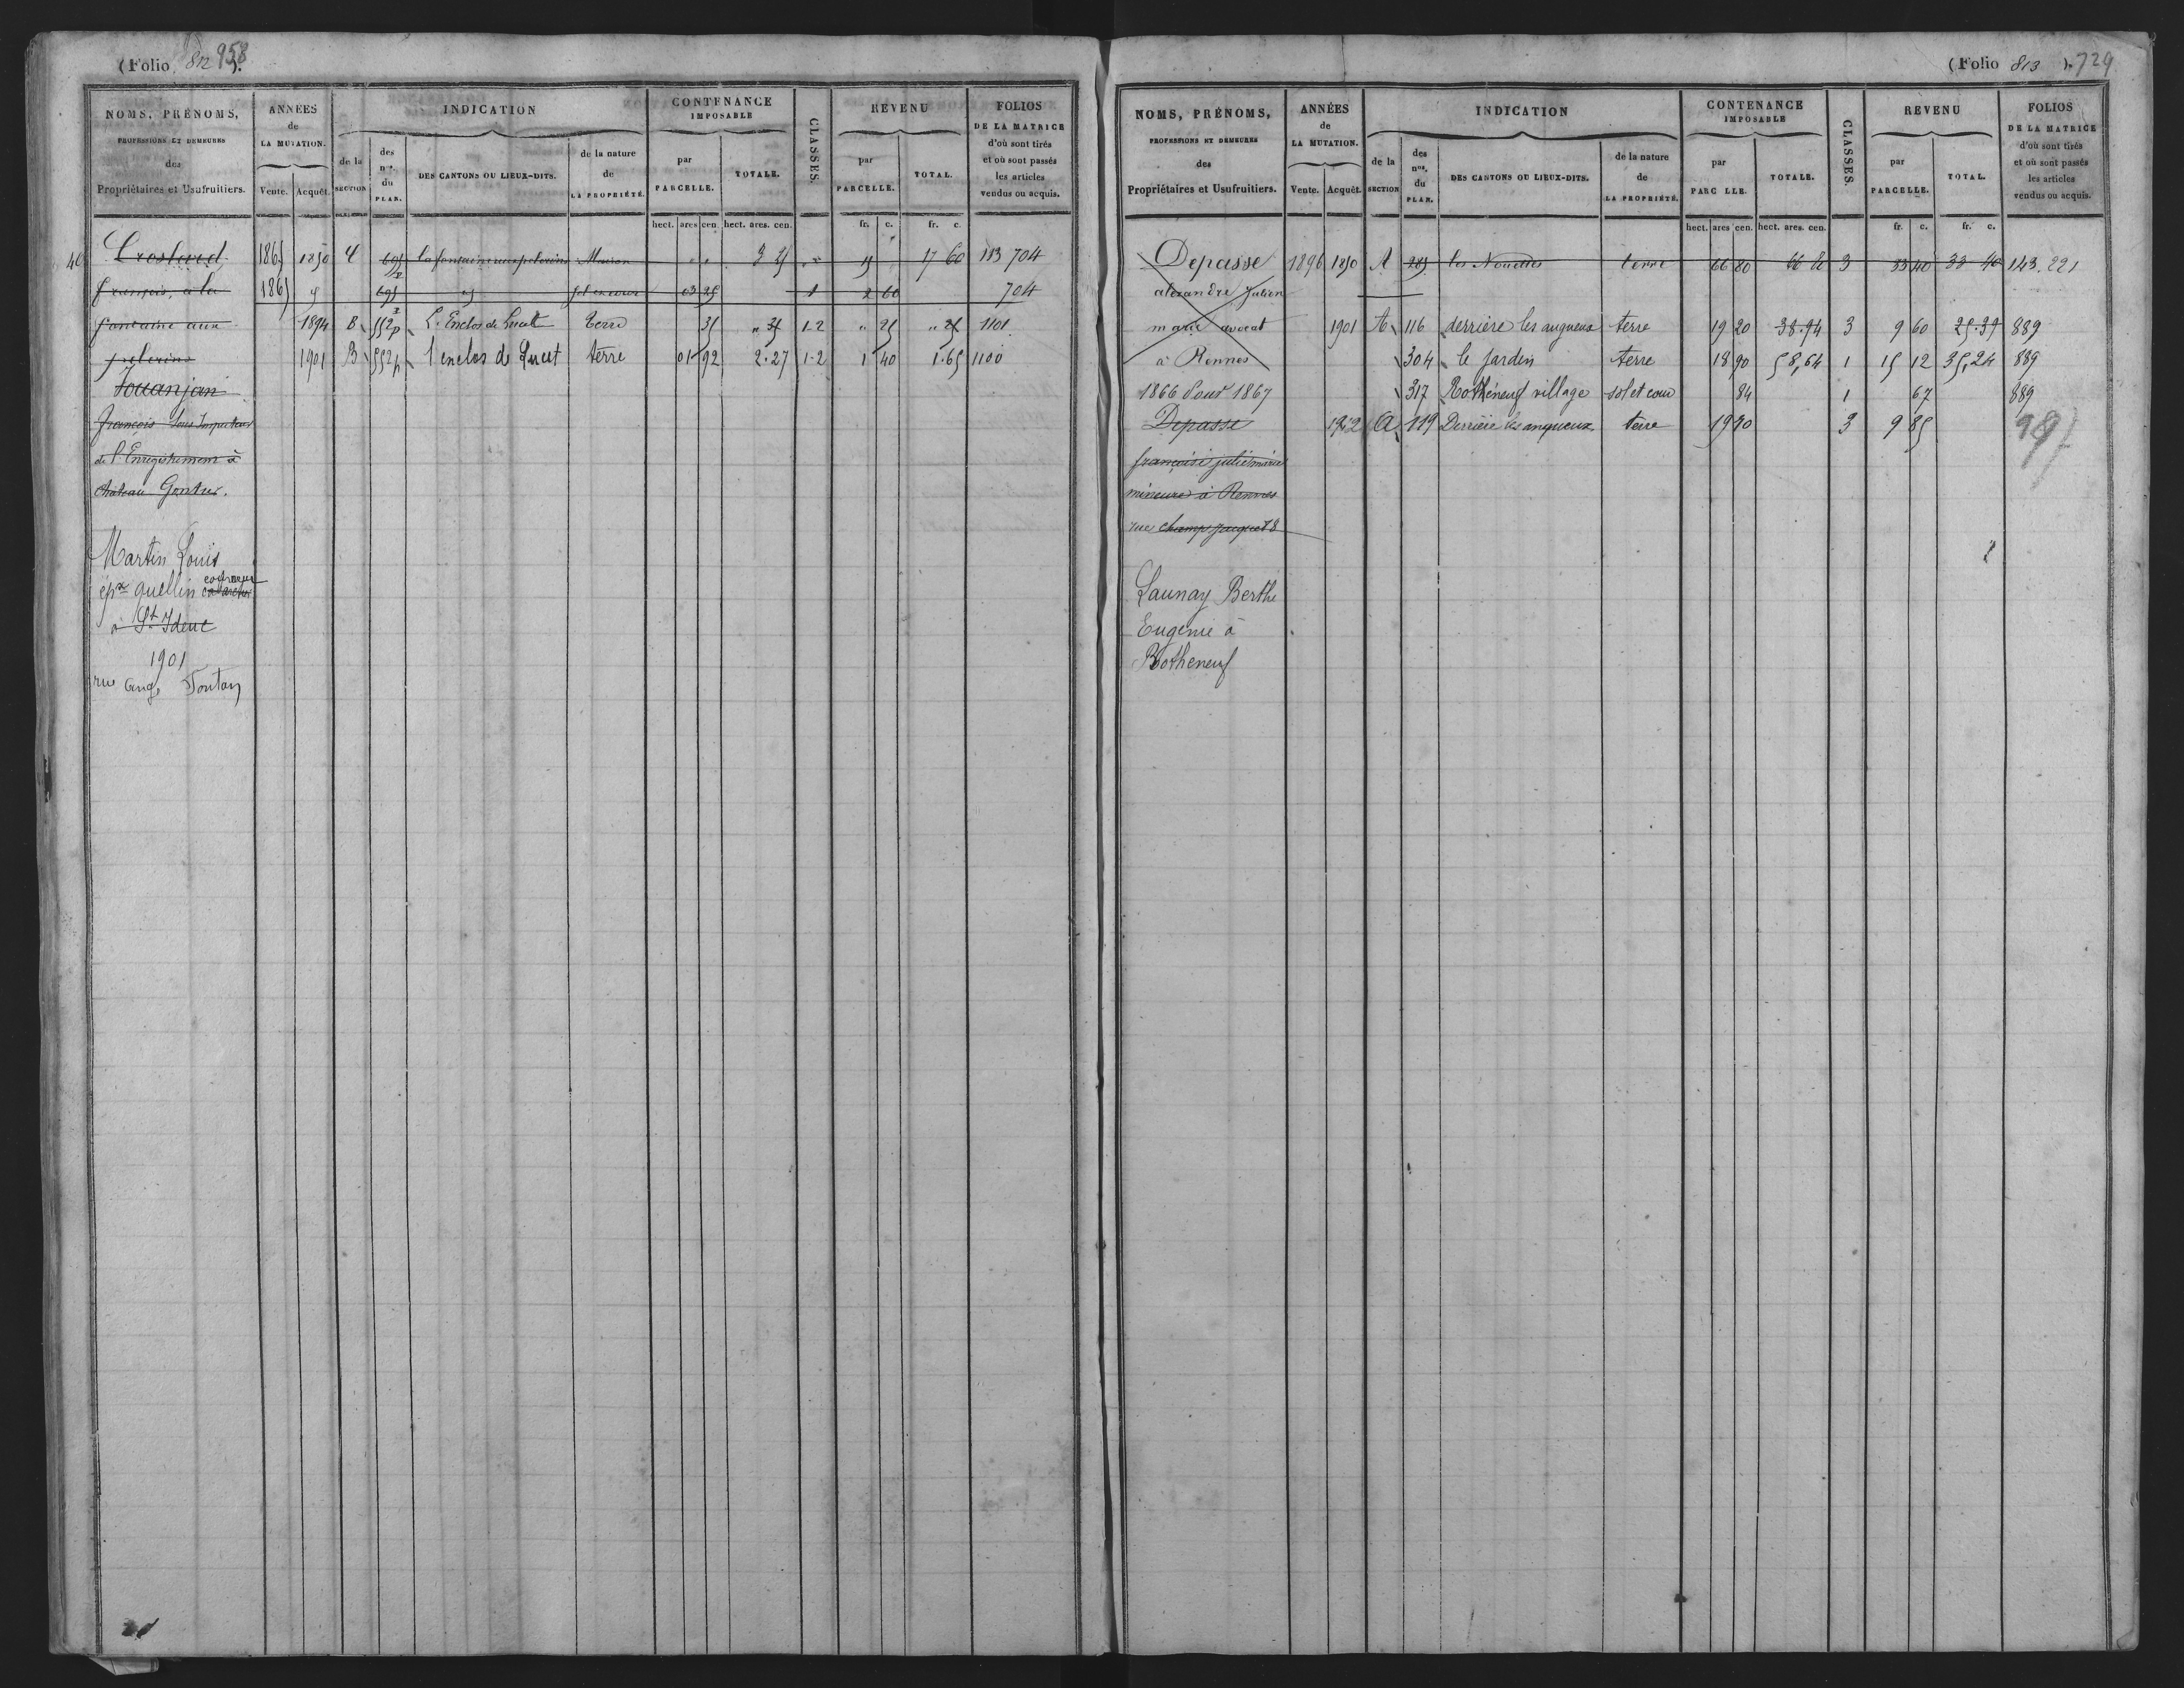 (Folio 812 ). 958
NOMS, PRÉNOMS, PROFESSIONS ET DEMEURES des Propriétaires et Usufruitiers.
ANNÉES de LA MUTATION. Vente. Acquêt.
INDICATION de la SECTION des nos. du PLAN. DES CANTONS OU LIEUX-DITS. de la nature de LA PROPRIÉTÉ.
CONTENANCE IMPOSABLE par PARCELLE. TOTALE.
CLASSES.
REVENU par PARCELLE. TOTAL.
FOLIOS DE LA MATRICE d'où sont tirés et où sont passés les articles vendus ou acquis.
hect. ares cen. hect. ares. cen. fr. c. fr. c.
1865 1850 695 la fontaine aux pelerins Maison " " 3 25 15 17 60 183 704
françois, à la 1865 695 sol et cour 03 25 1 2 60 704
fontaine aux 1894 B 552p L'Enclos de Lucet Terre 35 " 35 1-2 " 25 " 25 1101
pelerins 1901 B 552p l'enclos de Lucet terre 01 92 2.27 1-2 1 40 1.65 1100
Jouanjan
françois Sous Inspecteur
de l'Enregistrement à
Château Gontier.
Martin Louis
épx quellin
à St Ideuc
1901
rue Ange Fontan
(Folio 813 ). 729
NOMS, PRÉNOMS, PROFESSIONS ET DEMEURES des Propriétaires et Usufruitiers.
ANNÉES de LA MUTATION. Vente. Acquêt.
INDICATION de la SECTION des nos. du PLAN. DES CANTONS OU LIEUX-DITS. de la nature de LA PROPRIÉTÉ.
CONTENANCE IMPOSABLE par PARC LLE. TOTALE.
CLASSES.
REVENU par PARCELLE. TOTAL.
FOLIOS DE LA MATRICE d'où sont tirés et où sont passés les articles vendus ou acquis.
hect. ares cen. hect. ares. cen. fr. c. fr. c.
Depasse 1896 1850 A 285 les Nouettes terre 66 80 66 80 3 33 40 33 40 143.221
alexandre Julien
marie avocat 1901 A 116 derrière les angueux terre 19 20 38.94 3 9 60 25.39 889
à Rennes 304 le jardin terre 18 90 58,64 1 15 12 35,24 889
1866 Pour 1867 317 Rothéneuf village sol et cour 84 1 67 889
Depasse A 119 Derrière les angueux terre 19 70 3 9 85
françoise julie marie
mineure à Rennes
rue champ jacquet 8
Launay Berthe
Eugénie à
Rotheneuf